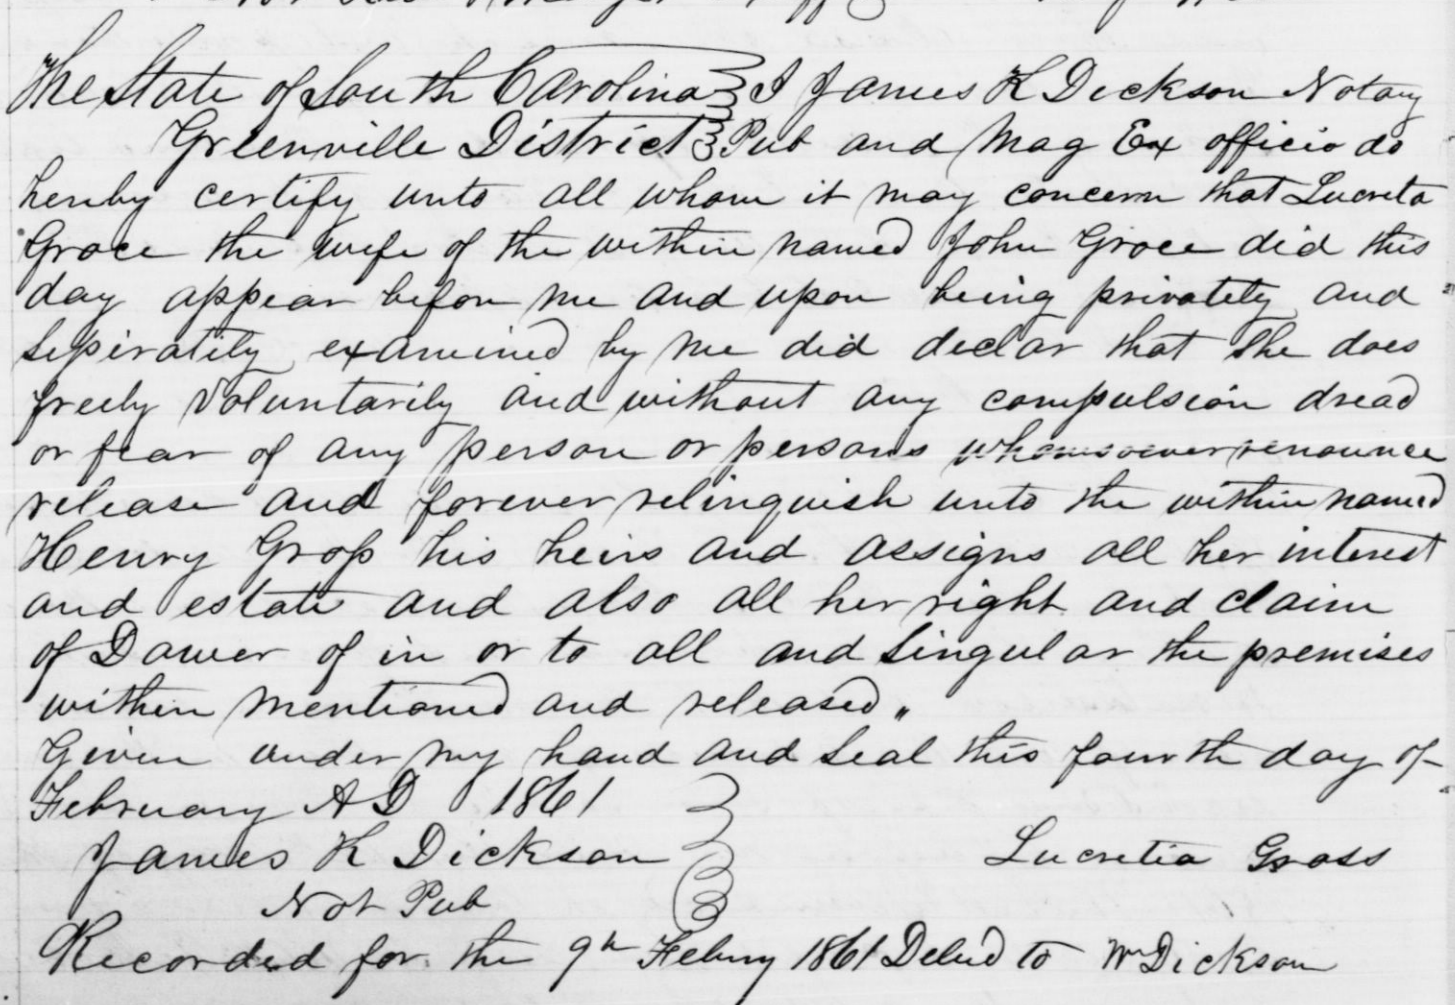 The State of South Carolina I James H Dickson Notary
Greenville District Pub and Mag Ex officio do
hereby certify unto all whom it may concern that Lucreta
Grace the wife of the within named John Grace did this
day appear before me and upon being privately and
sepirately examined by me did declar that she does
freely Voluntarily and without any compulsion dread
or fear of any person or persons whomsoever renounce
release and forever relinquish unto the within named
Henry Gross his heirs and assigns all her interest
and estate and also all her right and claim
of Dower of in or to all and Singular the premises
within mentioned and released "
Given under my hand and Seal this fourth day of
February A D 1861
James H Dickson Lucretia Gross
Not Pub
Recorded for the 9th Febury 1861 Delied to Wm Dickson